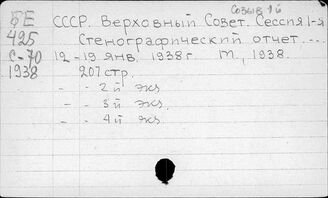 Созыв 1б
БЕ СССР. Верховный Совет. Сессия 1-я
425 Стенографический отчет...
С-70 12-19 янв. 1938 г. М., 1938.
1938 207 стр.
- - 2й экз.
- - 3й экз.
- - 4й экз.